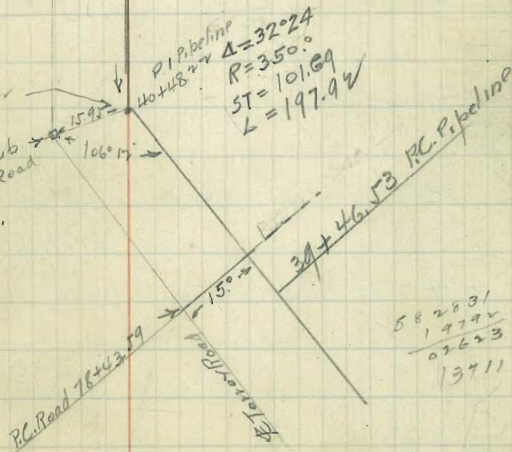 P.I Pipeline
40+48²²
Δ=32°24
R=350.⁰
ST=101.69
L=197.92
15.9⁵
ub
Road
106°12
39+46.53 P.C. Pipeline
15.⁰
P.C. Road 78+43.59
Road
582831
19792
02623
13711